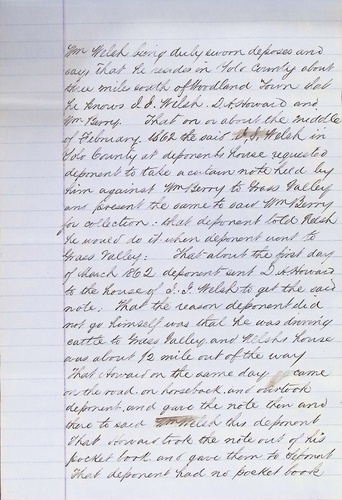 Wm Welsh being duly sworn deposes and
says that he resides in Yolo County about
three miles south of Woodland Town that
he knows I. J. Welsh. D. A. Howard and
Wm Berry. That on or about the middle
of February 1862 he said I. J. Welsh in
Yolo County at deponents house requested
deponent to take a certain note held by
him against Wm Berry to Grass Valley
and present the same to said Wm Berry
for collection: that deponent told Welsh
he would do it when deponent went to
Grass Valley: That about the first day
of March 1862 deponent sent D. A. Howard
to the house of I. J. Welsh to get the said
note: That the reason deponent did
not go himself was that he was driving
cattle to Grass Valley and Welshs house
was about 1/2 mile out of the way
That Howard on the same day came
on the road on horseback and overtook
deponent, and gave the note then and
there to said Wm Welsh this deponent
That Howard took the note out of his
pocket book and gave them to
That deponent had no pocket book